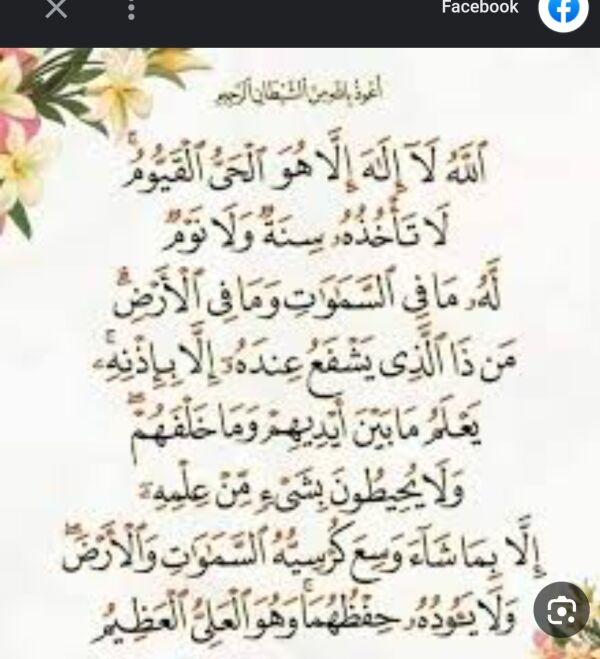 Facebook
أعوذ بالله من ٱلشيطان ٱلرجيم
ٱللَّهُ لَآ إِلَٰهَ إِلَّا هُوَ ٱلْحَىُّ ٱلْقَيُّومُ ۚ
لَا تَأْخُذُهُۥ سِنَةٌ وَلَا نَوْمٌ ۚ
لَّهُۥ مَا فِى ٱلسَّمَٰوَٰتِ وَمَا فِى ٱلْأَرْضِ ۗ
مَن ذَا ٱلَّذِى يَشْفَعُ عِندَهُۥٓ إِلَّا بِإِذْنِهِۦ ۚ
يَعْلَمُ مَا بَيْنَ أَيْدِيهِمْ وَمَا خَلْفَهُمْ ۖ
وَلَا يُحِيطُونَ بِشَىْءٍ مِّنْ عِلْمِهِۦٓ
إِلَّا بِمَا شَآءَ ۚ وَسِعَ كُرْسِيُّهُ ٱلسَّمَٰوَٰتِ وَٱلْأَرْضَ ۖ
وَلَا يَـُٔودُهُۥ حِفْظُهُمَا ۚ وَهُوَ ٱلْعَلِىُّ ٱلْعَظِيمُ